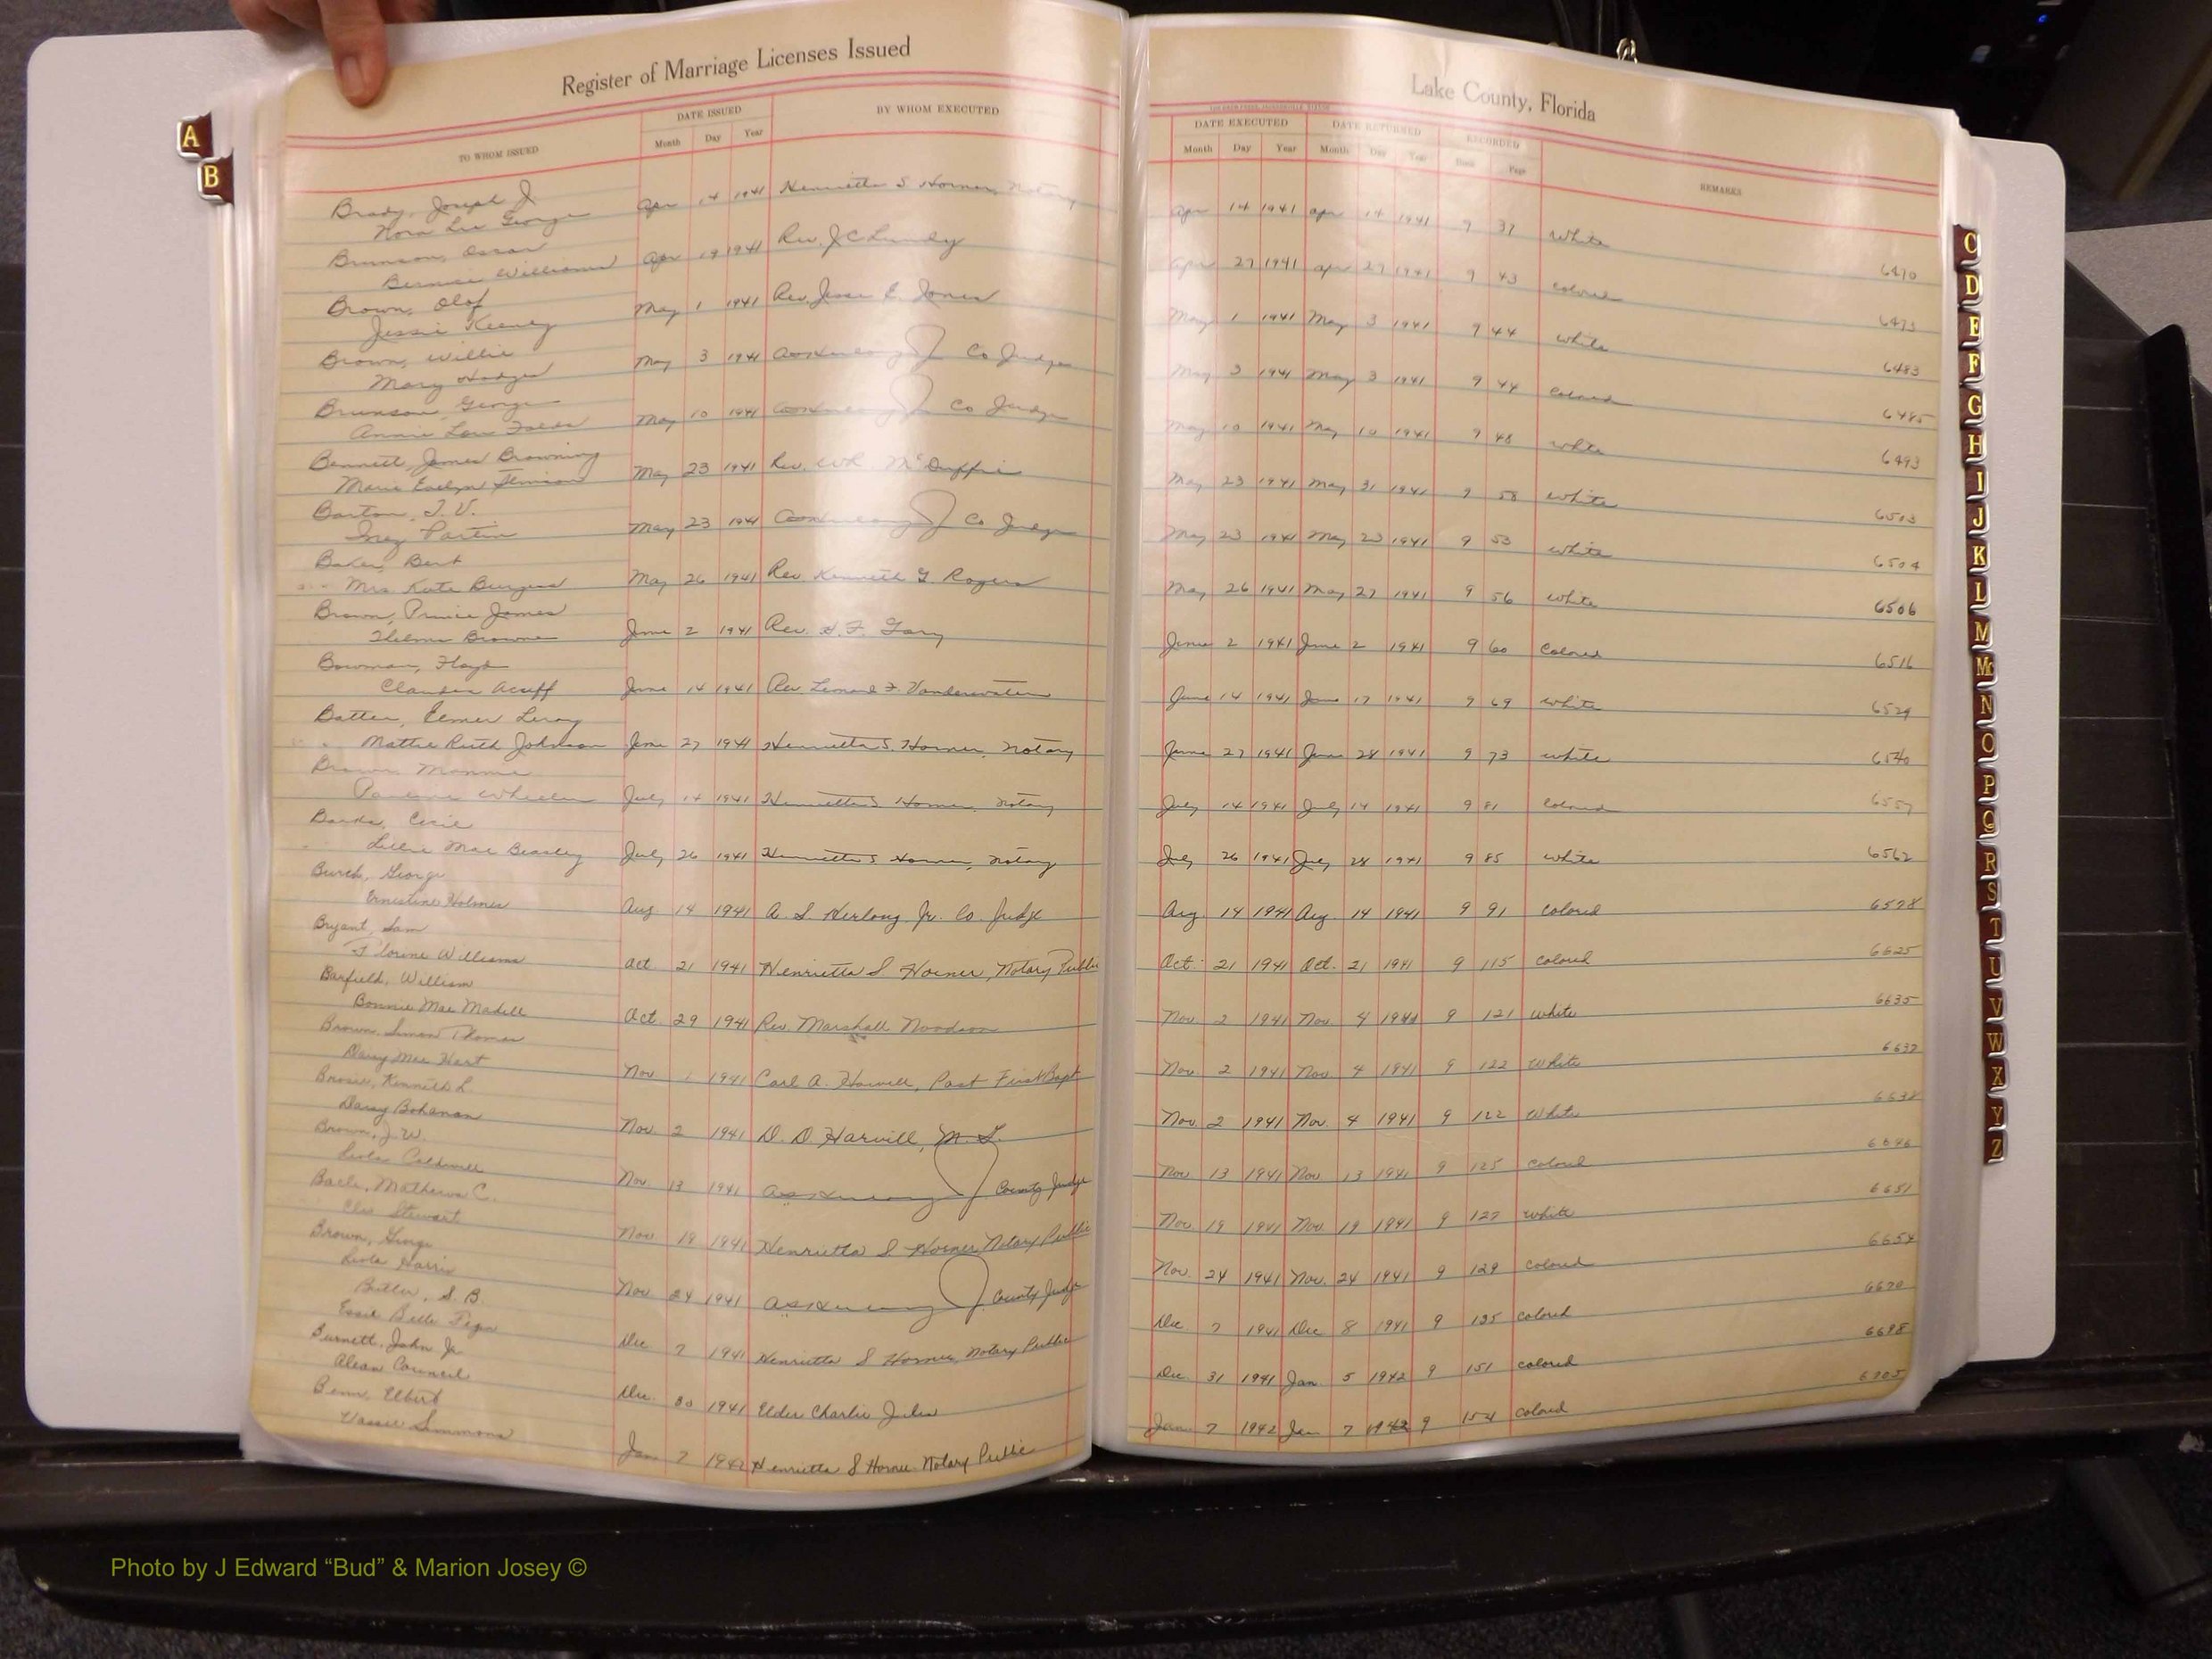 Register of Marriage Licenses Issued
Lake County, Florida
TO WHOM ISSUED DATE ISSUED BY WHOM EXECUTED DATE EXECUTED DATE RETURNED RECORDED REMARKS
Month Day Year Month Day Year Month Day Year Book Page
Brady, Joseph J.
Nora Lee George Apr 14 1941 Henrietta S. Horner, Notary Apr 14 1941 Apr 14 1941 9 37 White 6470
Brunson, Oscar
Bernice Williams Apr 19 1941 Rev. J C Lundy Apr 27 1941 Apr 27 1941 9 43 colored 6473
Brown, Olof
Jessie Keeney May 1 1941 Rev. Jesse E. Jones May 1 1941 May 3 1941 9 44 white 6483
Brown, Willie
Mary Hodges May 3 1941 Co Judge May 3 1941 May 3 1941 9 44 Colored 6485
Brunson, George
Annie Lou May 10 1941 Co Judge May 10 1941 May 10 1941 9 48 white 6493
Bennett, James Browning
Marie Evelyn May 23 1941 Rev. W.R. McDuffie May 23 1941 May 31 1941 9 58 white 6503
Barton, J. V.
Inez Partin May 23 1941 Co Judge May 23 1941 May 23 1941 9 53 white 6504
Baker, Bert
Mrs. Kate Burgess May 26 1941 Rev Kenneth G. Rogers May 26 1941 May 27 1941 9 56 white 6506
Brown, Prince James
Thelma Browne June 2 1941 Rev. H. F. Gary June 2 1941 June 2 1941 9 60 Colored 6516
Bowman, Floyd
Claudia Acuff June 14 1941 Rev Lenard F. Vanderwater June 14 1941 June 17 1941 9 69 white 6529
Batten, Elmer Leroy
Mattie Ruth Johnson June 27 1941 Henrietta S. Horner, Notary June 27 1941 June 28 1941 9 73 white 6540
Brown,
Pauline Wheeler July 14 1941 Henrietta S Horner, Notary July 14 1941 July 14 1941 9 81 Colored 6557
Banks, Cecil
Lillie Mae Beasley July 26 1941 Henrietta S Horner, Notary July 26 1941 July 28 1941 9 85 white 6562
Burch, George
Ernestine Holmes Aug 14 1941 A. S. Herlong, Jr. Co. Judge Aug. 14 1941 Aug. 14 1941 9 91 colored 6578
Bryant, Sam
Florine Williams Oct 21 1941 Henrietta S. Horner, Notary Public Oct. 21 1941 Oct. 21 1941 9 115 colored 6625
Barfield, William
Bonnie Mae Madell Oct. 29 1941 Rev. Marshall Woodson Nov. 2 1941 Nov. 4 1941 9 121 white 6635
Brown, Simon Thomas
Daisy Mae Hart Nov 1 1941 Carl A. Howell, Past First Bapt Nov. 2 1941 Nov. 4 1941 9 122 White 6637
Brosie, Kenneth L.
Daisy Bohanan Nov. 2 1941 D. D. Harvill, M. G. Nov. 2 1941 Nov. 4 1941 9 122 White 6638
Brown, J. W.
Leola Caldwell Nov. 13 1941 County Judge Nov 13 1941 Nov 13 1941 9 125 colored 6646
Mathews C.
Stewart Nov 19 1941 Henrietta S Horner, Notary Public Nov. 19 1941 Nov. 19 1941 9 127 white 6651
Brown,
Leola Harris Nov 24 1941 County Judge Nov. 24 1941 Nov. 24 1941 9 129 colored 6654
Butler, S. B.
Essie Belle Dec 7 1941 Henrietta S Horner, Notary Public Dec 7 1941 Dec 8 1941 9 135 colored 6670
Burnett, John Jr.
Alean Council Dec. 30 1941 Elder Charlie Dec. 31 1941 Jan. 5 1942 9 151 colored 6698
Benn, Elbert
Simmons Jan 7 1942 Henrietta S Horner Notary Public Jan 7 1942 Jan 7 1942 9 154 colored 6705
A
B
C
D
E
F
G
H
I
J
K
L
M
Mc
N
O
P
Q
R
S
T
U
V
W
X
Y
Z
Photo by J Edward “Bud” & Marion Josey ©